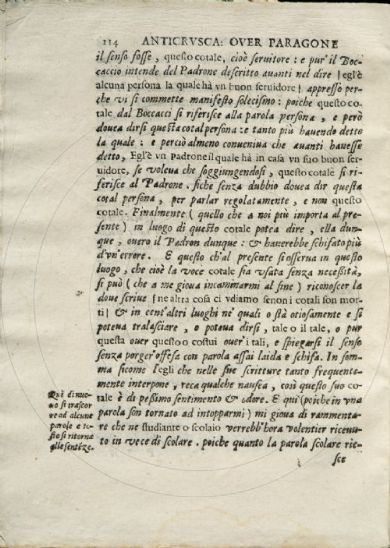 114 ANTICRVSCA: OVER PARAGONE
il senso fosse, questo cotale, cioè seruitore: e pur'il Boc-
caccio intende del Padrone descritto auanti nel dire | egl'è
alcuna persona la quale hà vn buon seruidore| appresso per-
che vi si commette manifesto solecismo: poiche questo co-
tale dal Boccacci si riferisce alla parola persona, e però
douea dirsi questa cotal persona: e tanto più hauendo detto
la quale: e perciò almeno conueniua che auanti hauesse
detto, Egl'è vn padrone il qual'hà in casa vn suo buon ser-
uidore, se voleua che soggiungendosi, questo cotale si ri-
ferisse al Padrone. siche senza dubbio douea dir questa
cotal persona, per parlar regolatamente, e non questo
cotale. Finalmente ( quello che a noi più importa al pre-
sente ) in luogo di questo cotale potea dire, ella dun-
que, ouero il Padron dunque: & hauerebbe schifato più
d'vn'errore. E questo ch'al presente si osserua in questo
luogo, che cioè la voce cotale sia vsata senza necessità,
si può ( che a me gioua incaminarmi al fine) riconoscer la
doue scriue |ne altra cosa ci vdiamo senon i cotali son mor-
ti| & in cent'altri luoghi ne' quali o stà otiosamente e si
poteua tralasciare, o poteua dirsi, tale o il tale, o pur
questa ouer questo o costui ouer'i tali, e spiegarsi il senso
senza porger'offesa con parola assai laida e schifa. In som-
ma sicome l'egli che nelle sue scritture tanto frequente-
mente interpone, reca qualche nausea, così questo suo co-
tale è di pessimo sentimento & odore. E qui (poiche in vna
parola son tornato ad intopparmi) mi gioua di rammenta-
re che ne studiante o scolaio verrebb'hora volentier riceuu-
to in vece di scolare. poiche quanto la parola scolare rie-
sce
Quì di nuo-
uo si trascor
re ad alcune
parole e to-
sto si ritorna
alle sentēze.